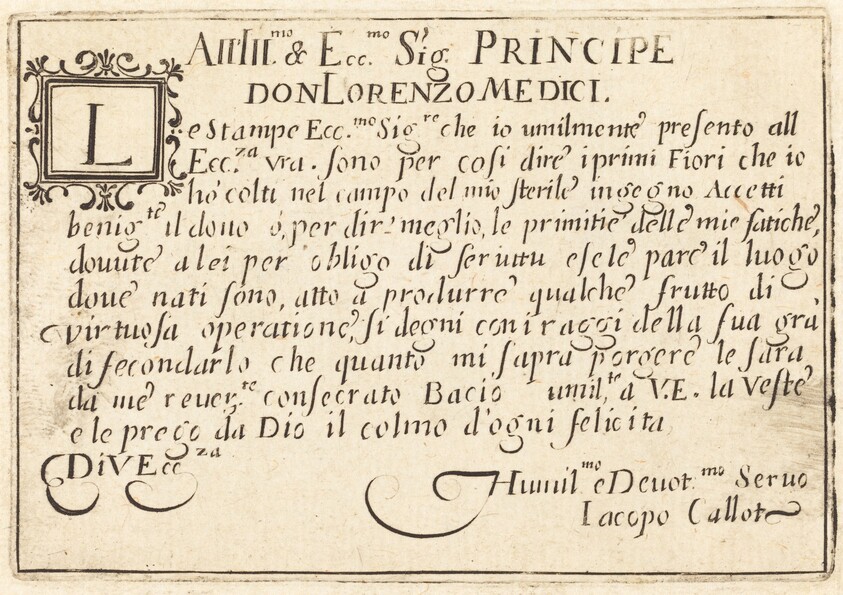 All Ill.mo & Ecc.mo Sig. PRINCIPE
DON LORENZO MEDICI.
Le Stampe Ecc.mo Sig.re che io umilmente presento all
Ecc.za vra. sono per cosi dire i primi Fiori che io
hò colti nel campo del mio sterile ingegno Accetti
benig.te il dono ò, per dir meglio, le primitie delle mie fatiche,
douute a lei per obligo di seruitu e se le pare il luogo
doue nati sono, atto à produrre qualche frutto di
virtuosa operatione, si degni con i raggi della sua grà
di fecondarlo che quanto mi saprà porgere le sarà
da me reuer.te consecrato Bacio umil.te a V.E. la veste
e le prego da Dio il colmo d'ogni felicita
Di V Ecc.za
Humil.mo e Deuot.mo Seruo
Iacopo Callot